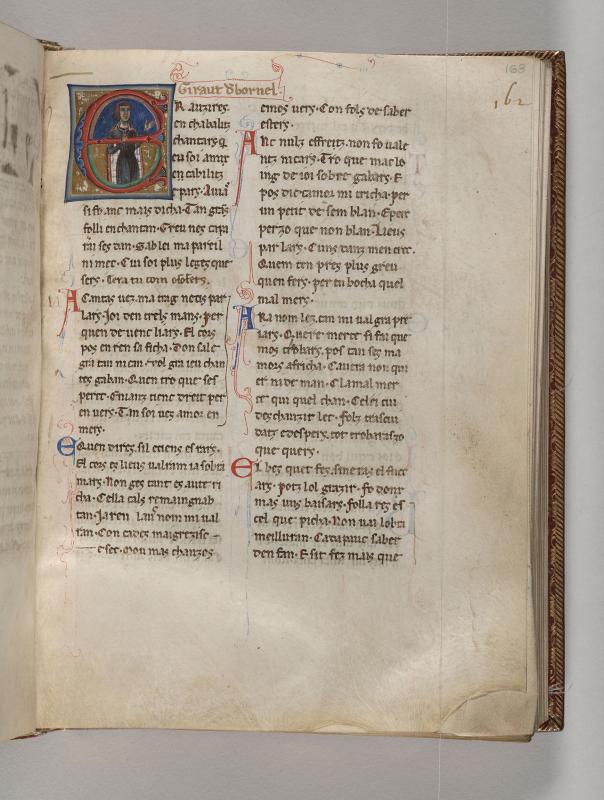 163
162
Giraut d'bornel.
ER auzirez
en chabalitz
chantars q
eu soi amix
en cabilitz
e pars. Auia
si fo anc mais dicha. Tan grãs
folli en chantan. Greu nes capi
rai ses dan. Gab lei ma pareil
ni mer. Cui soi plus leges que
sers.
Acantas vez. ma trag necis par
lars. Joi den trels mans. per
quen de venc liars. El cors
pos en ren sa ficha. Don sale
gra tan ni can. vol gra ieu chan
tes gaban. Quen tro que ses
pert. Enanz tiene dreit per
en vers. Tan soi vez amor en
mers.
Equen direz. sil eciens es rars.
El cors es lieus ualriam ia sobra
mars. Non ges tant es aut ri
cha. Cella cals remaingnab
tan. Ja ren lau nom mi ual
ran. Con cades maigrezisc
esec. Mou mas chanzos
emos uers. Con fols de saber
esters.
Anc nulz effreitz. non fo uale
ntz ni cars. Tro que mac lo
ing de ioi sobre gabars. E
pos die camor mi tricha. per
un petit de sem blan. Eper
perzo que non blan. Lieus
par lars. Cuns danz men cre.
Quem ten prez plus greu
quen fers. per ta bocha quel
mal mers.
Ara nom lez. tan mi ual gra pre
iars. Quere merce si fai que
mos trobars. pos can ses ma
mors africha. Cauera non qui
er ni de man. Cla mal mer
ce qui quel chan. Celei cui
deschauzir let. folz trascui
datz e despers. tot trobaras zo
que quers.
El bes quet fez. sine ras el fuec
ars. potz lol grazir. fo donr
mas uns baisars. folla res es
cel que picha. Non uai lobra
meilluran. Cada pauc saber
den fan. E sit fez mais que